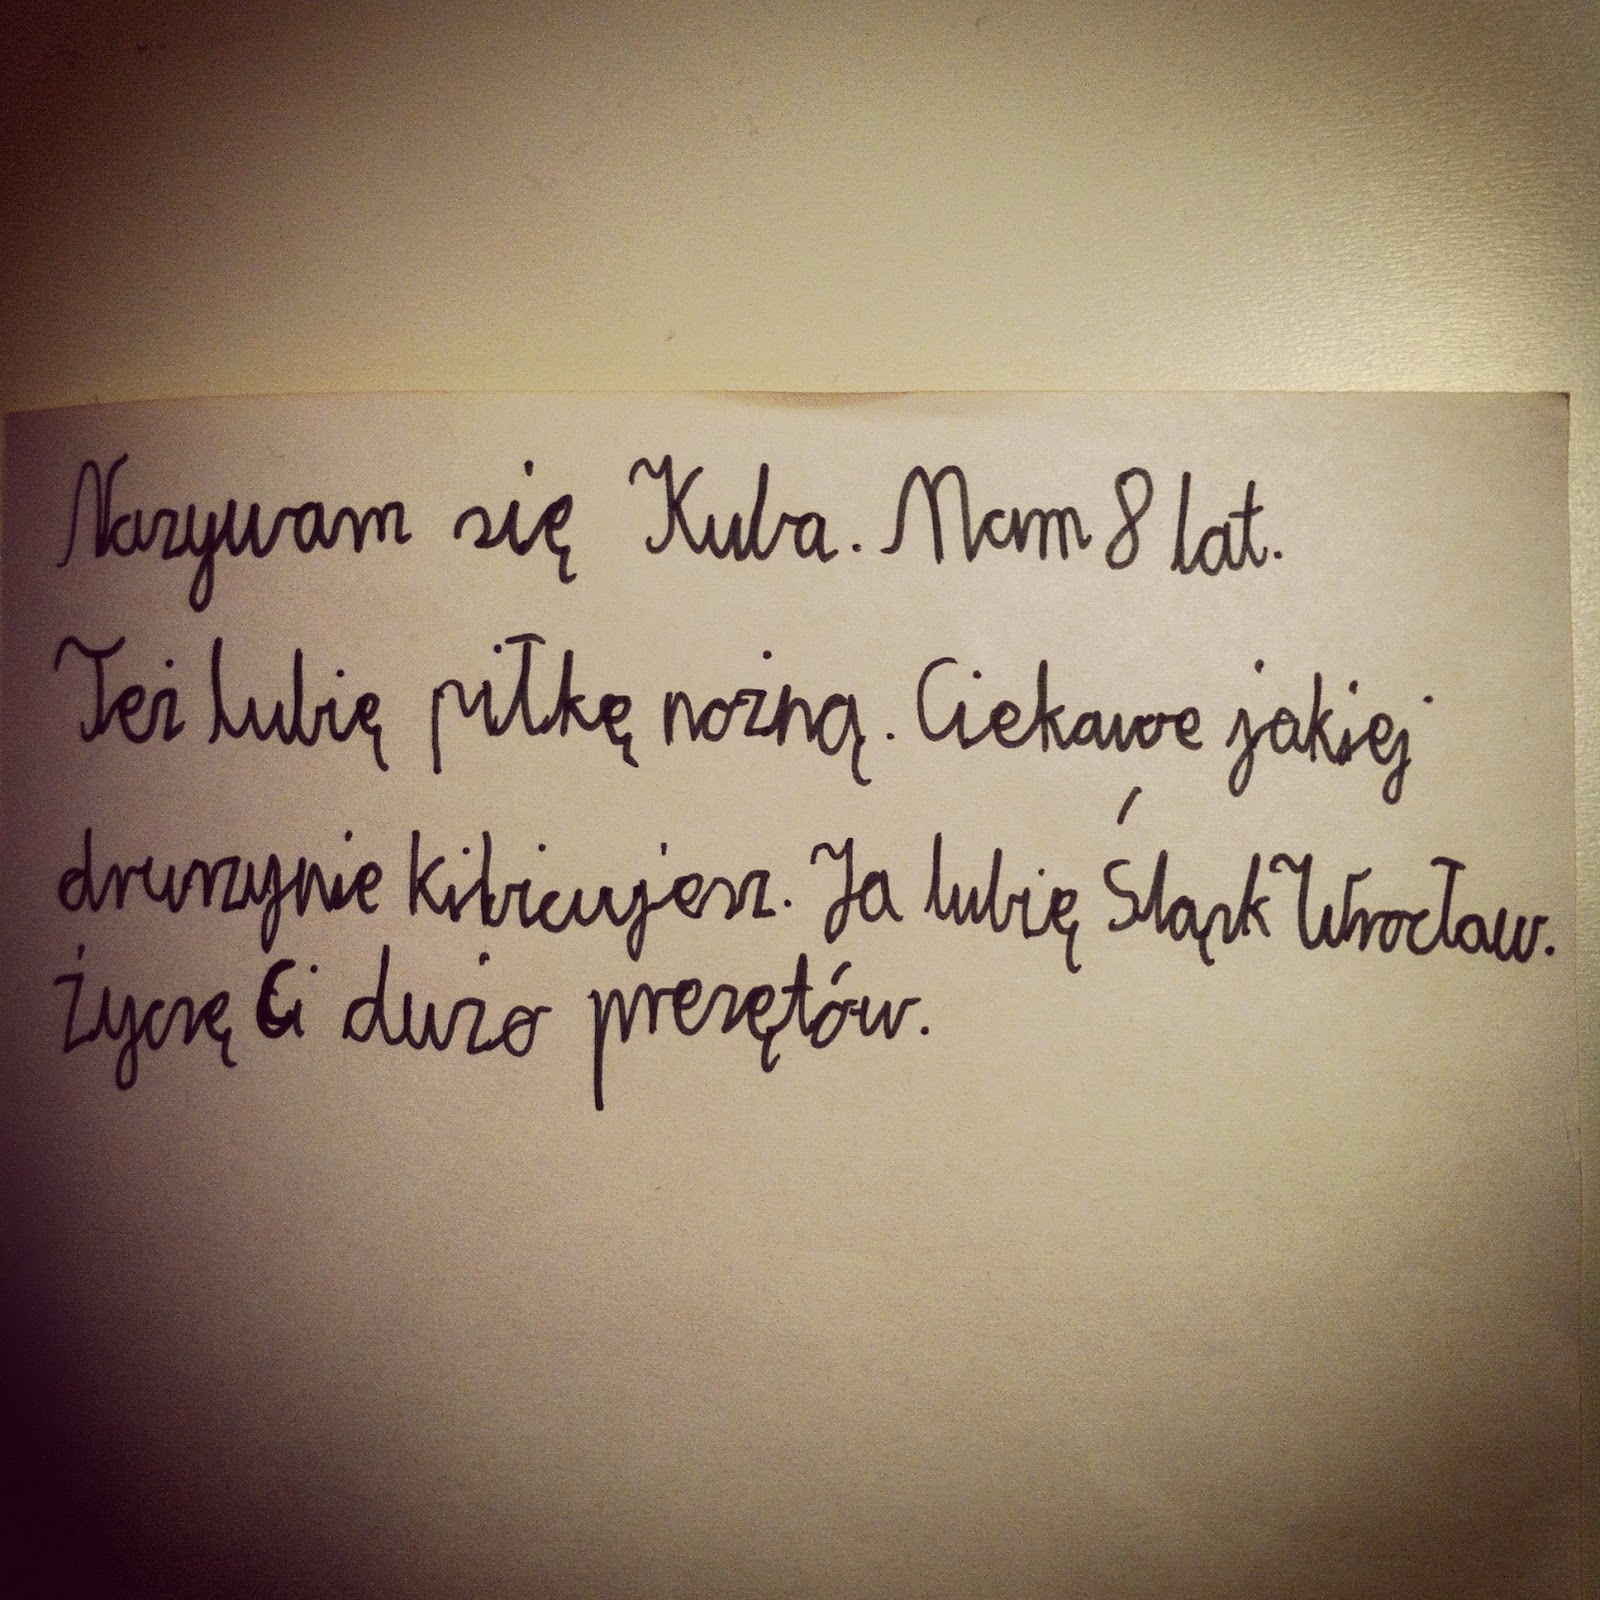 Nazywam się Kuba. Mam 8 lat.
Też lubię piłkę nożną. Ciekawe jakiej
druszynie kibicujesz. Ja lubię Śląsk Wrocław.
Życzę Ci dużo prezętów.